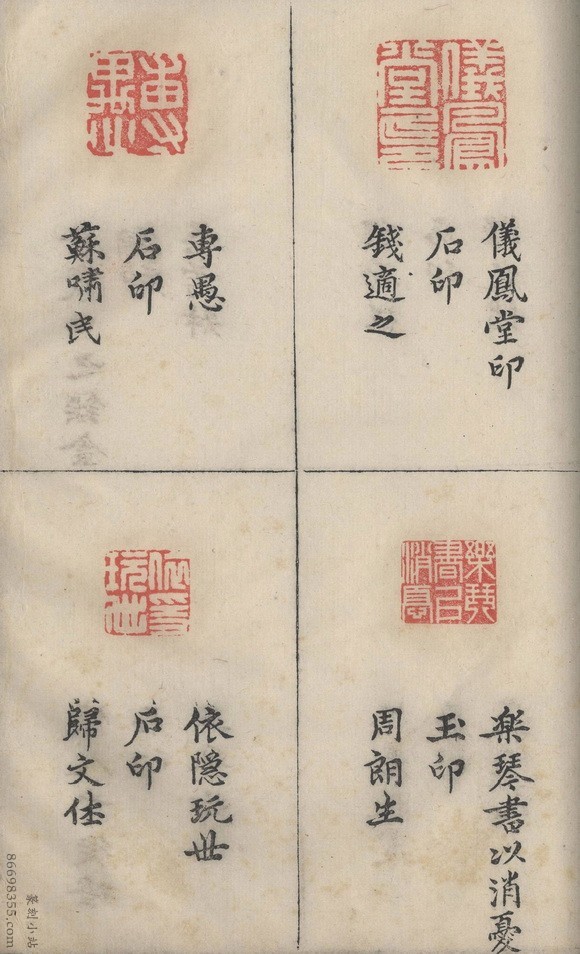 儀鳳堂印
儀鳳堂印
石印
錢適之
專愚
專愚
石印
蘇嘯民
樂琴書以消憂
樂琴書以消憂
玉印
周朗生
依隱玩世
依隱玩世
石印
歸文休
篆刻小站
86698355.com